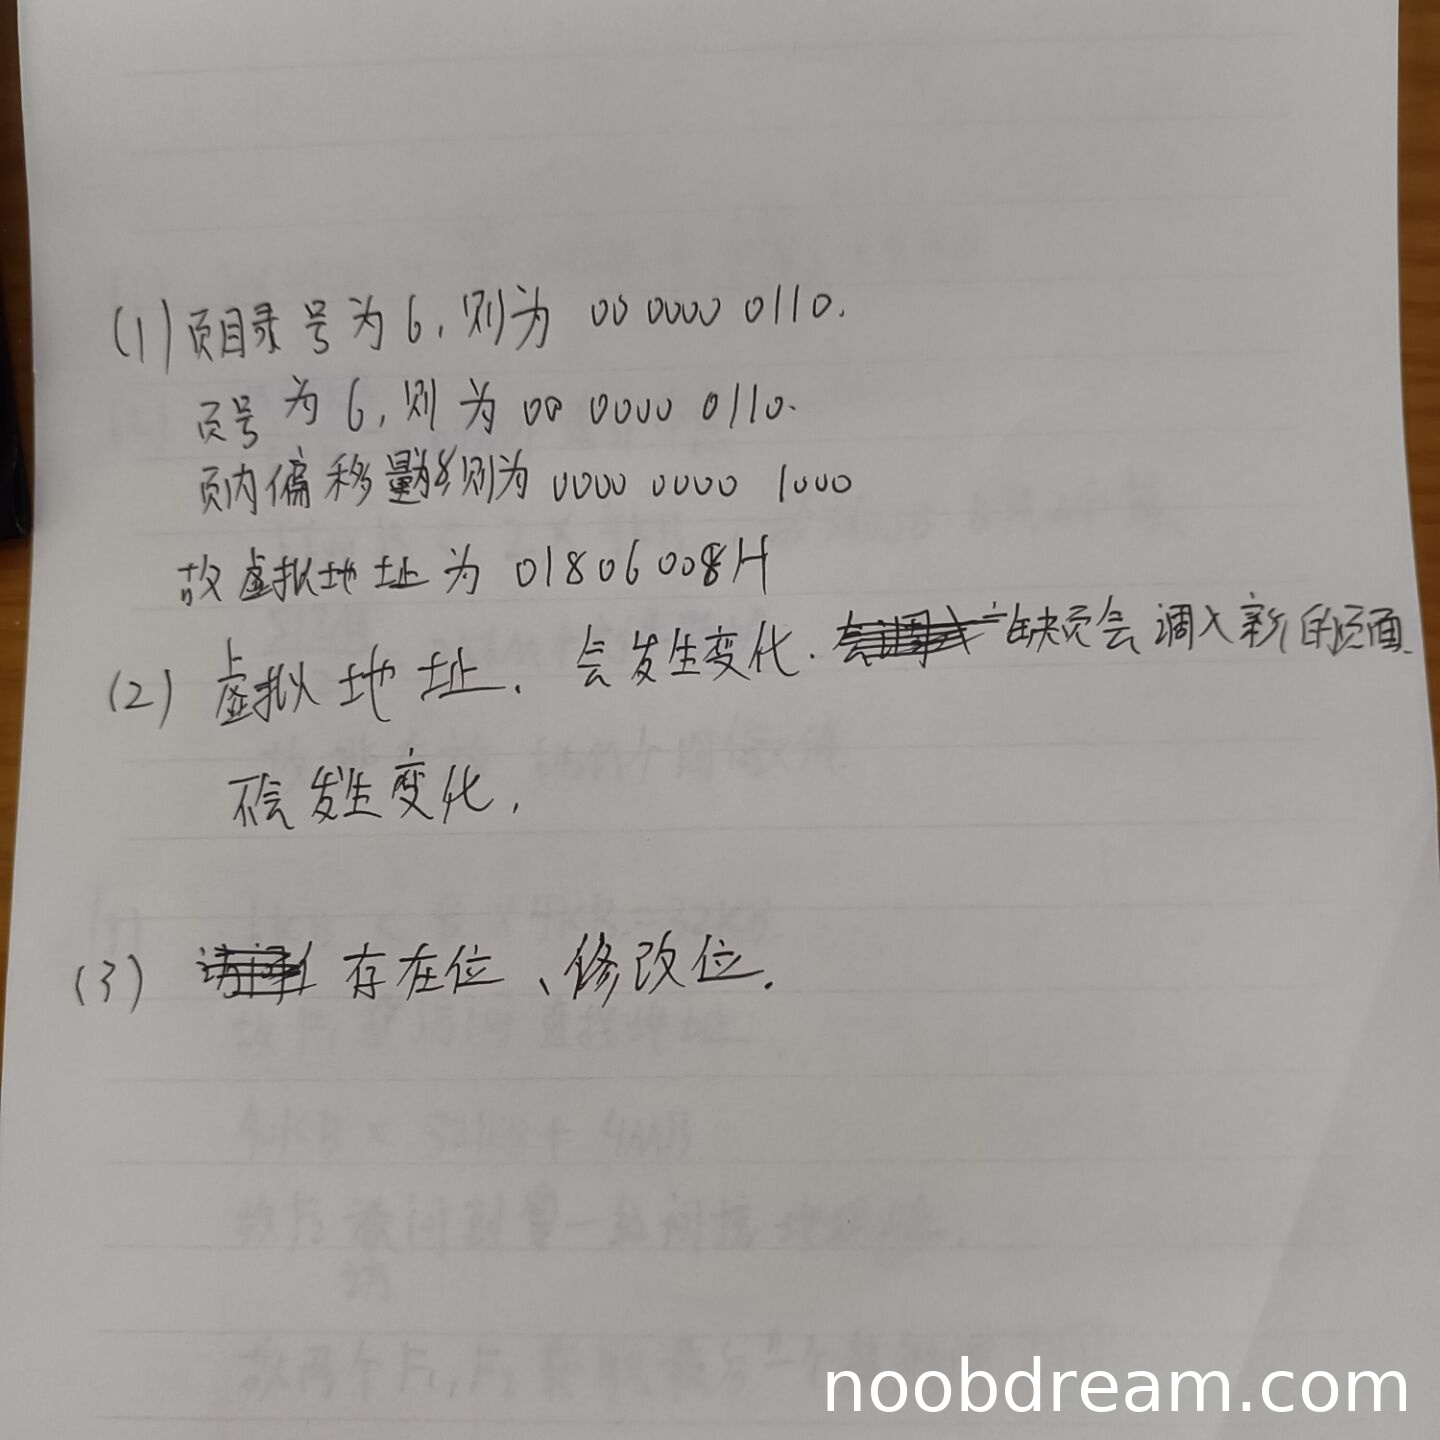 (1) 页目录号为6，则为 00 0000 0110.
页号为6，则为 00 0000 0110.
页内偏移量为8则为 0000 0000 1000
故虚拟地址为 01806008H
(2) 虚拟地址．会发生变化．缺页会调入新的页面．
不会发生变化，
(3) 存在位、修改位．
noobdream.com